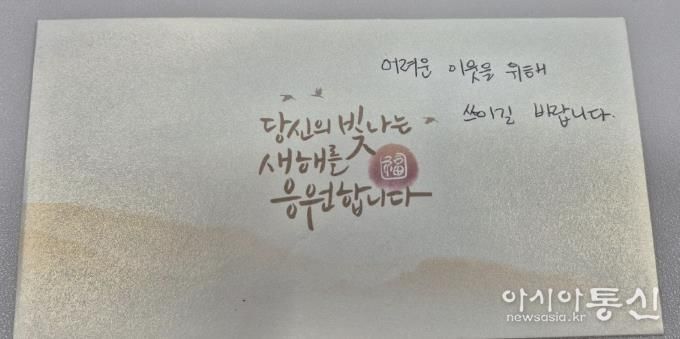 어려운 이웃을 위해
쓰이길 바랍니다.
당신의 빛나는
새해를
福
응원합니다
아시아통신
newsasia.kr